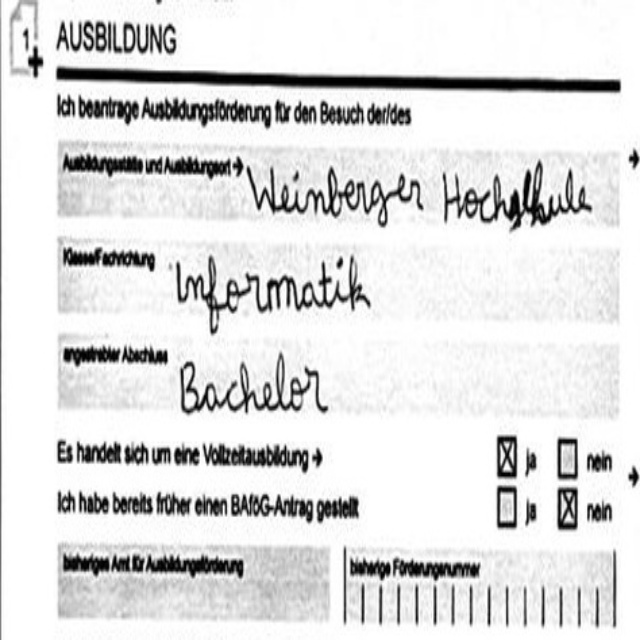 1
AUSBILDUNG
Ich beantrage Ausbildungsförderung für den Besuch der/des
Ausbildungsstätte und Ausbildungsort → Weinberger Hochschule
Klasse/Fachrichtung Informatik
angestrebter Abschluss Bachelor
Es handelt sich um eine Vollzeitausbildung → ja nein
Ich habe bereits früher einen BAföG-Antrag gestellt ja nein
bisheriges Amt für Ausbildungsförderung bisherige Förderungsnummer